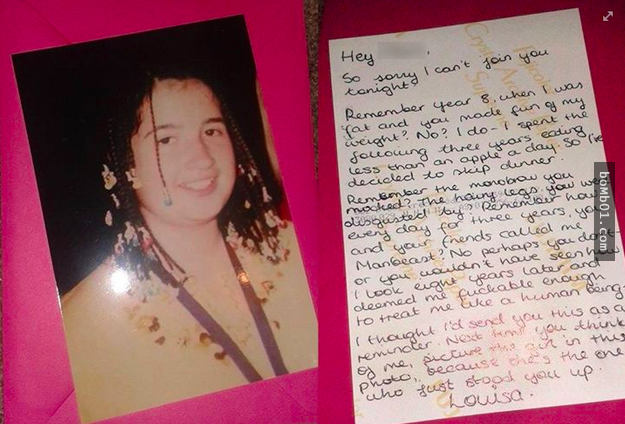 Hey
So sorry I can't join you
tonight.
Remember year 8, when I was
fat and you made fun of my
weight? No? I do - I spent the
following three years eating
less than an apple a day. So I've
decided to skip dinner.
Remember the monobrow you
mocked? The hairy legs you were
disgusted by? Remember how
every day for three years, you
and your friends called me
Manbeast? No perhaps you don't -
or you wouldn't have seen how
I look eight years later and
deemed me fuckable enough
to treat me like a human being.
I thought I'd send you this as a
reminder. Next time you think
of me, picture the girl in this
photo, because she's the one
who just stood you up.
Louisa.
bomb01.com